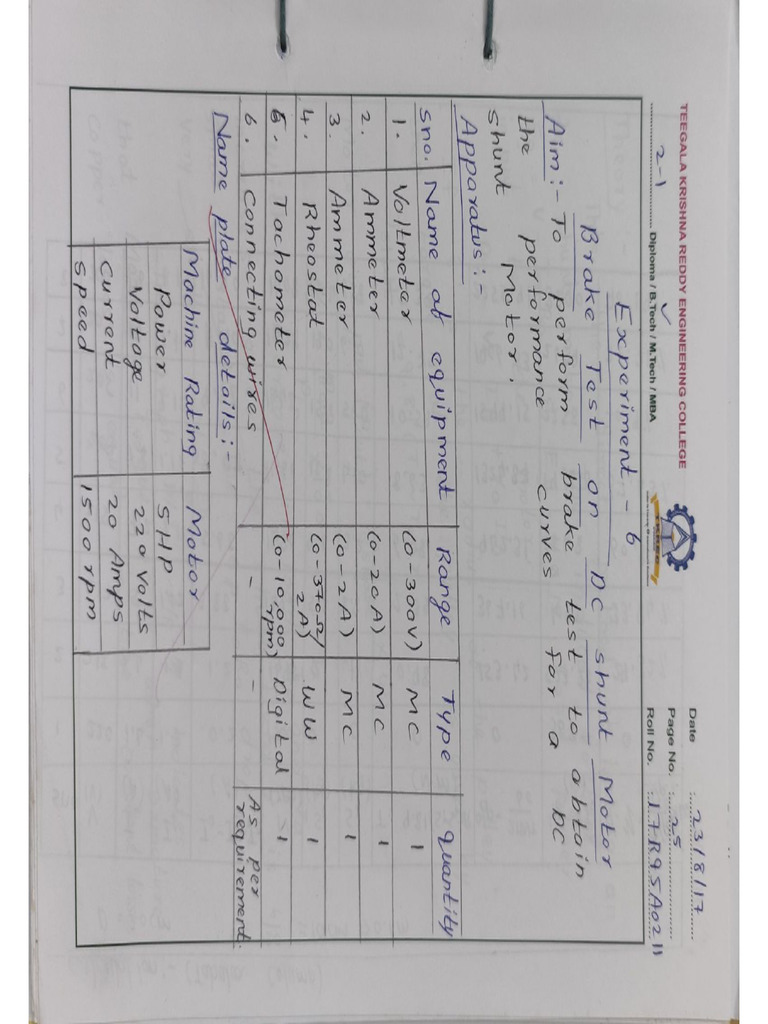 TEEGALA KRISHNA REDDY ENGINEERING COLLEGE
2-1 Diploma / B.Tech / M.Tech / MBA
Date 23/8/17
Page No. 25
Roll No. 17R95A0211
Experiment - 6
Brake Test on DC shunt Motor
Aim:- To perform brake test to obtain
the performance curves for a DC
shunt Motor.
Apparatus:-
Sno. Name of equipment Range Type quantity
1. Voltmeter (0-300V) MC 1
2. Ammeter (0-20A) MC 1
3. Ammeter (0-2A) MC 1
4. Rheostat (0-370Ω/ WW 1
2A)
5. Tachometer (0-10,000 Digital 1
rpm)
6. Connecting wires - - As per
requirement.
Name plate details:-
Machine Rating Motor
Power 5HP
Voltage 220 Volts
Current 20 Amps
Speed 1500 rpm